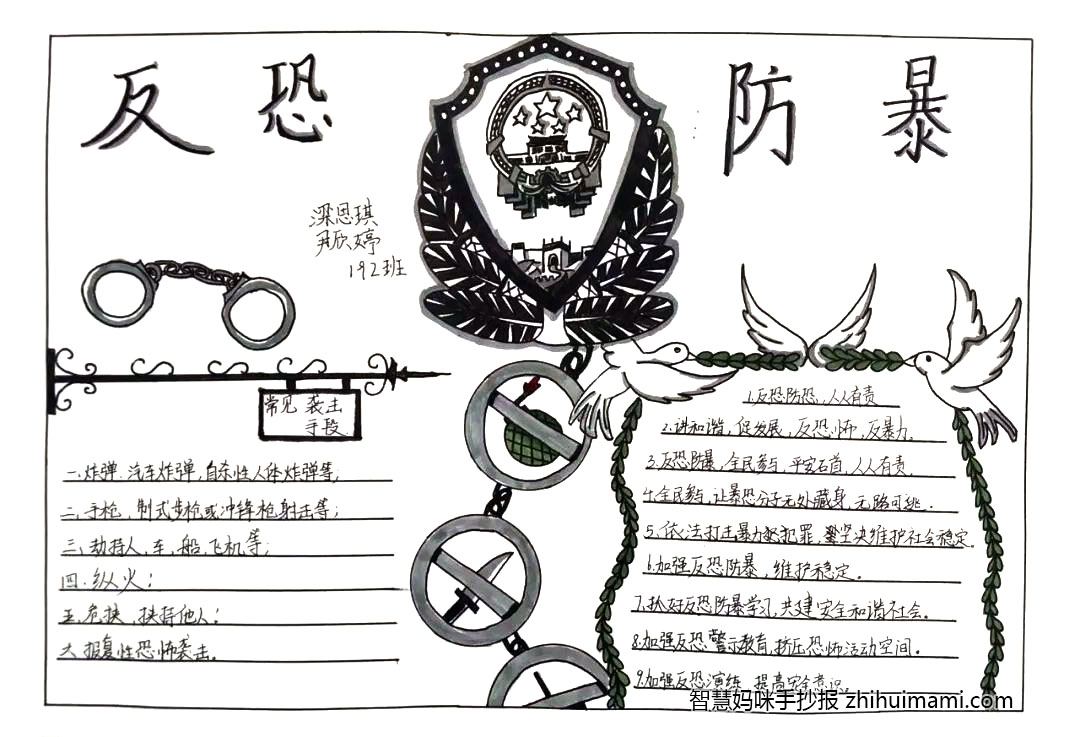 反恐防暴
梁恩琪
尹欣婷
192班
常见 袭击
手段
一.炸弹.汽车炸弹,自杀性人体炸弹等;
二.手枪,制式步枪或冲锋枪射击等;
三.劫持人,车,船,飞机等;
四.纵火;
五.危挟,挟持他人;
六.报复性恐怖袭击.
1.反恐防恐,人人有责
2.讲和谐,促发展,反恐怖,反暴力.
3.反恐防暴,全民参与,平安石首,人人有责.
4.全民参与,让暴恐分子无处藏身,无路可逃.
5.依法打击暴力犯罪,坚决维护社会稳定.
6.加强反恐防暴,维护稳定.
7.抓好反恐防暴学习,共建安全和谐社会.
8.加强反恐警示教育,挤压恐怖活动空间.
9.加强反恐演练 提高安全意识.
智慧妈咪手抄报 zhihuimami.com